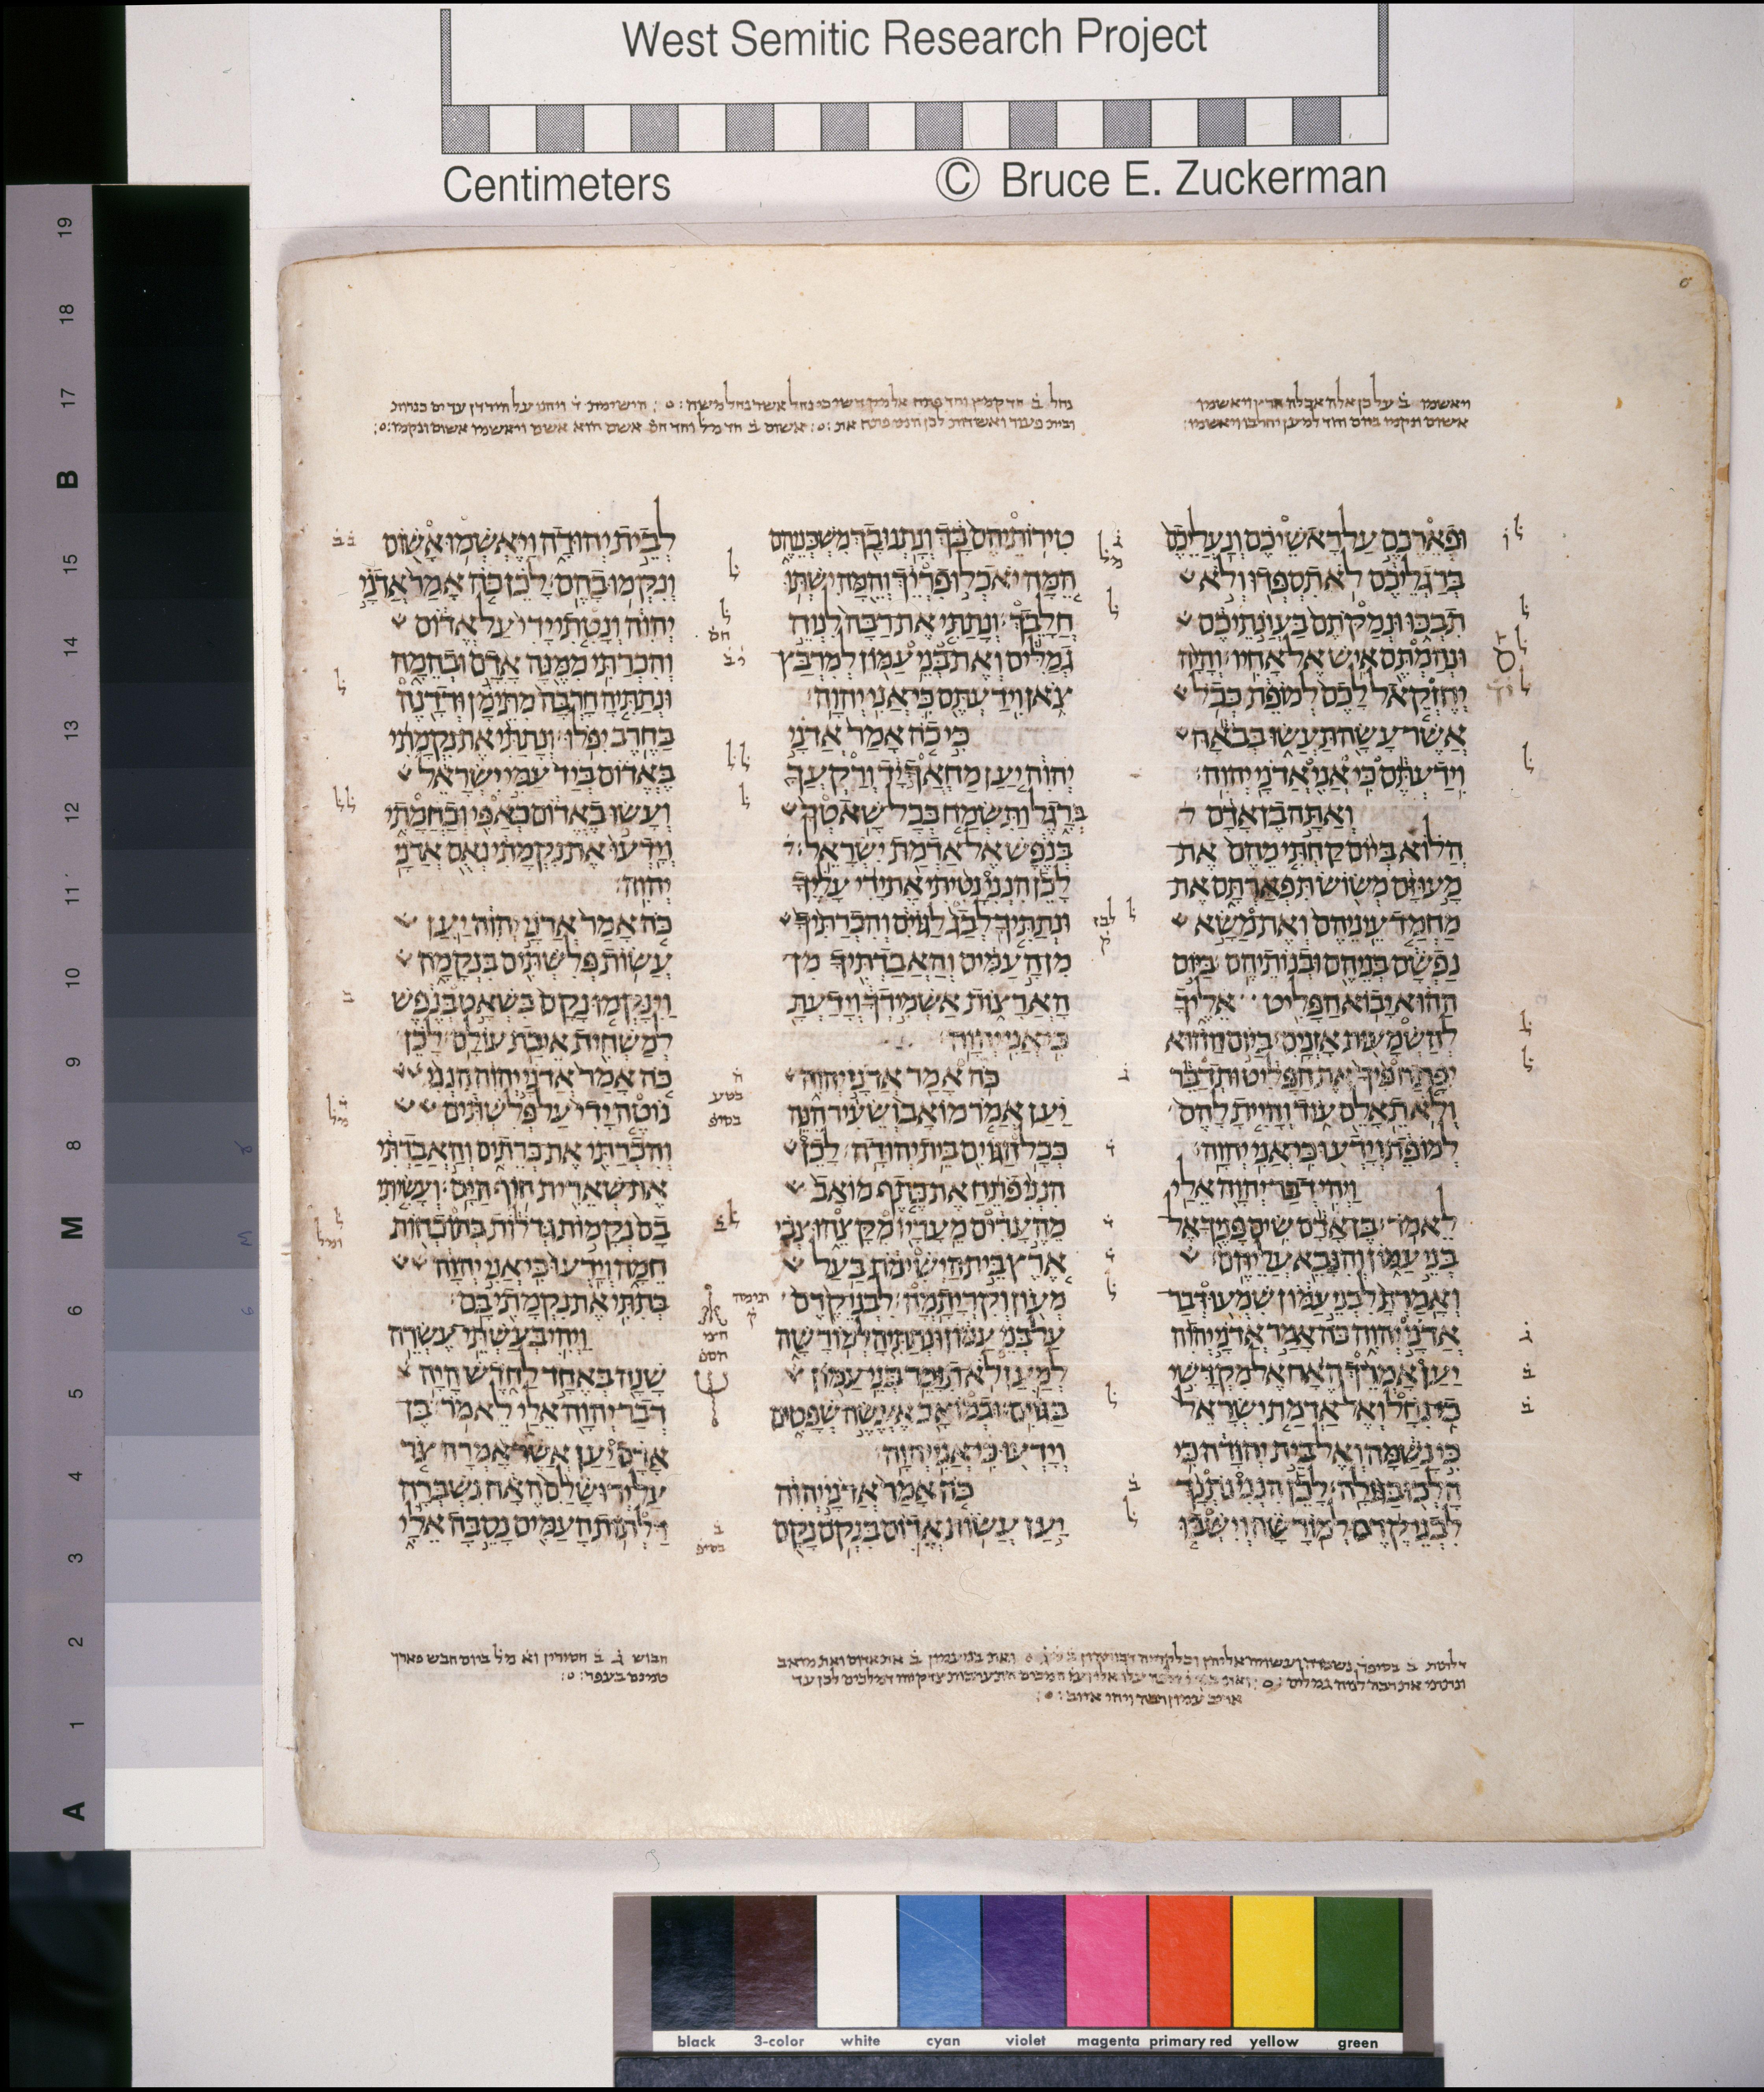 West Semitic Research Project
Centimeters © Bruce E. Zuckerman
ופארכם על ראשיכם ונעליכם
ברגליכם לא תספדו ולא
תבכו ונמקתם בעונתיכם
ונהמתם איש אל אחיו׃ והיה
יחזקאל לכם למופת ככל
אשר עשה תעשו בבאה
וידעתם כי אני אדני יהוה׃
ואתה בן אדם
הלוא ביום קחתי מהם את
מעוזם משוש תפארתם את
מחמד עיניהם ואת משא
נפשם בניהם ובנותיהם׃ ביום
ההוא יבוא הפליט אליך
להשמעות אזנים׃ ביום ההוא
יפתח פיך את הפליט ותדבר
ולא תאלם עוד והיית להם
למופת וידעו כי אני יהוה׃
ויהי דבר יהוה אלי
לאמר׃ בן אדם שים פניך אל
בני עמון והנבא עליהם׃
ואמרת לבני עמון שמעו דבר
אדני יהוה כה אמר אדני יהוה
יען אמרך האח אל מקדשי
כי נחל ואל אדמת ישראל
כי נשמה ואל בית יהודה כי
הלכו בגולה׃ לכן הנני נתנך
לבני קדם למורשה וישבו
טירותיהם בך ונתנו בך משכניהם
המה יאכלו פריך והמה ישתו
חלבך׃ ונתתי את רבה לנוה
גמלים ואת בני עמון למרבץ
צאן וידעתם כי אני יהוה׃
כי כה אמר אדני
יהוה יען מחאך יד ורקעך
ברגל ותשמח בכל שאטך
בנפש אל אדמת ישראל׃
לכן הנני נטיתי את ידי עליך
ונתתיך לבג לגוים והכרתיך
מן העמים והאבדתיך מן
הארצות אשמידך וידעת
כי אני יהוה׃
כה אמר אדני יהוה
יען אמר מואב ושעיר הנה
ככל הגוים בית יהודה׃ לכן
הנני פתח את כתף מואב
מהערים מעריו מקצהו צבי
ארץ בית הישימת בעל
מעון וקריתמה׃ לבני קדם
על בני עמון ונתתיה למורשה
למען לא תזכר בני עמון
בגוים׃ ובמואב אעשה שפטים
וידעו כי אני יהוה׃
כה אמר אדני יהוה
יען עשות אדום בנקם נקם
לבית יהודה ויאשמו אשום
ונקמו בהם׃ לכן כה אמר אדני
יהוה ונטתי ידי על אדום
והכרתי ממנה אדם ובהמה
ונתתיה חרבה מתימן ודדנה
בחרב יפלו׃ ונתתי את נקמתי
באדום ביד עמי ישראל
ועשו באדום כאפי וכחמתי
וידעו את נקמתי נאם אדני
יהוה׃
כה אמר אדני יהוה יען
עשות פלשתים בנקמה
וינקמו נקם בשאט בנפש
למשחית איבת עולם׃ לכן
כה אמר אדני יהוה הנני
נוטה ידי על פלשתים
והכרתי את כרתים והאבדתי
את שארית חוף הים׃ ועשיתי
בם נקמות גדלות בתוכחות
חמה וידעו כי אני יהוה
בתתי את נקמתי בם׃
ויהי בעשתי עשרה
שנה באחד לחדש היה
דבר יהוה אלי לאמר׃ בן
אדם יען אשר אמרה צר
על ירושלם האח נשברה
דלתות העמים נסבה אלי
19 18 17 B 15 14 13 12 11 10 9 8 M 6 5 4 3 2 1 A
black 3-color white cyan violet magenta primary red yellow green